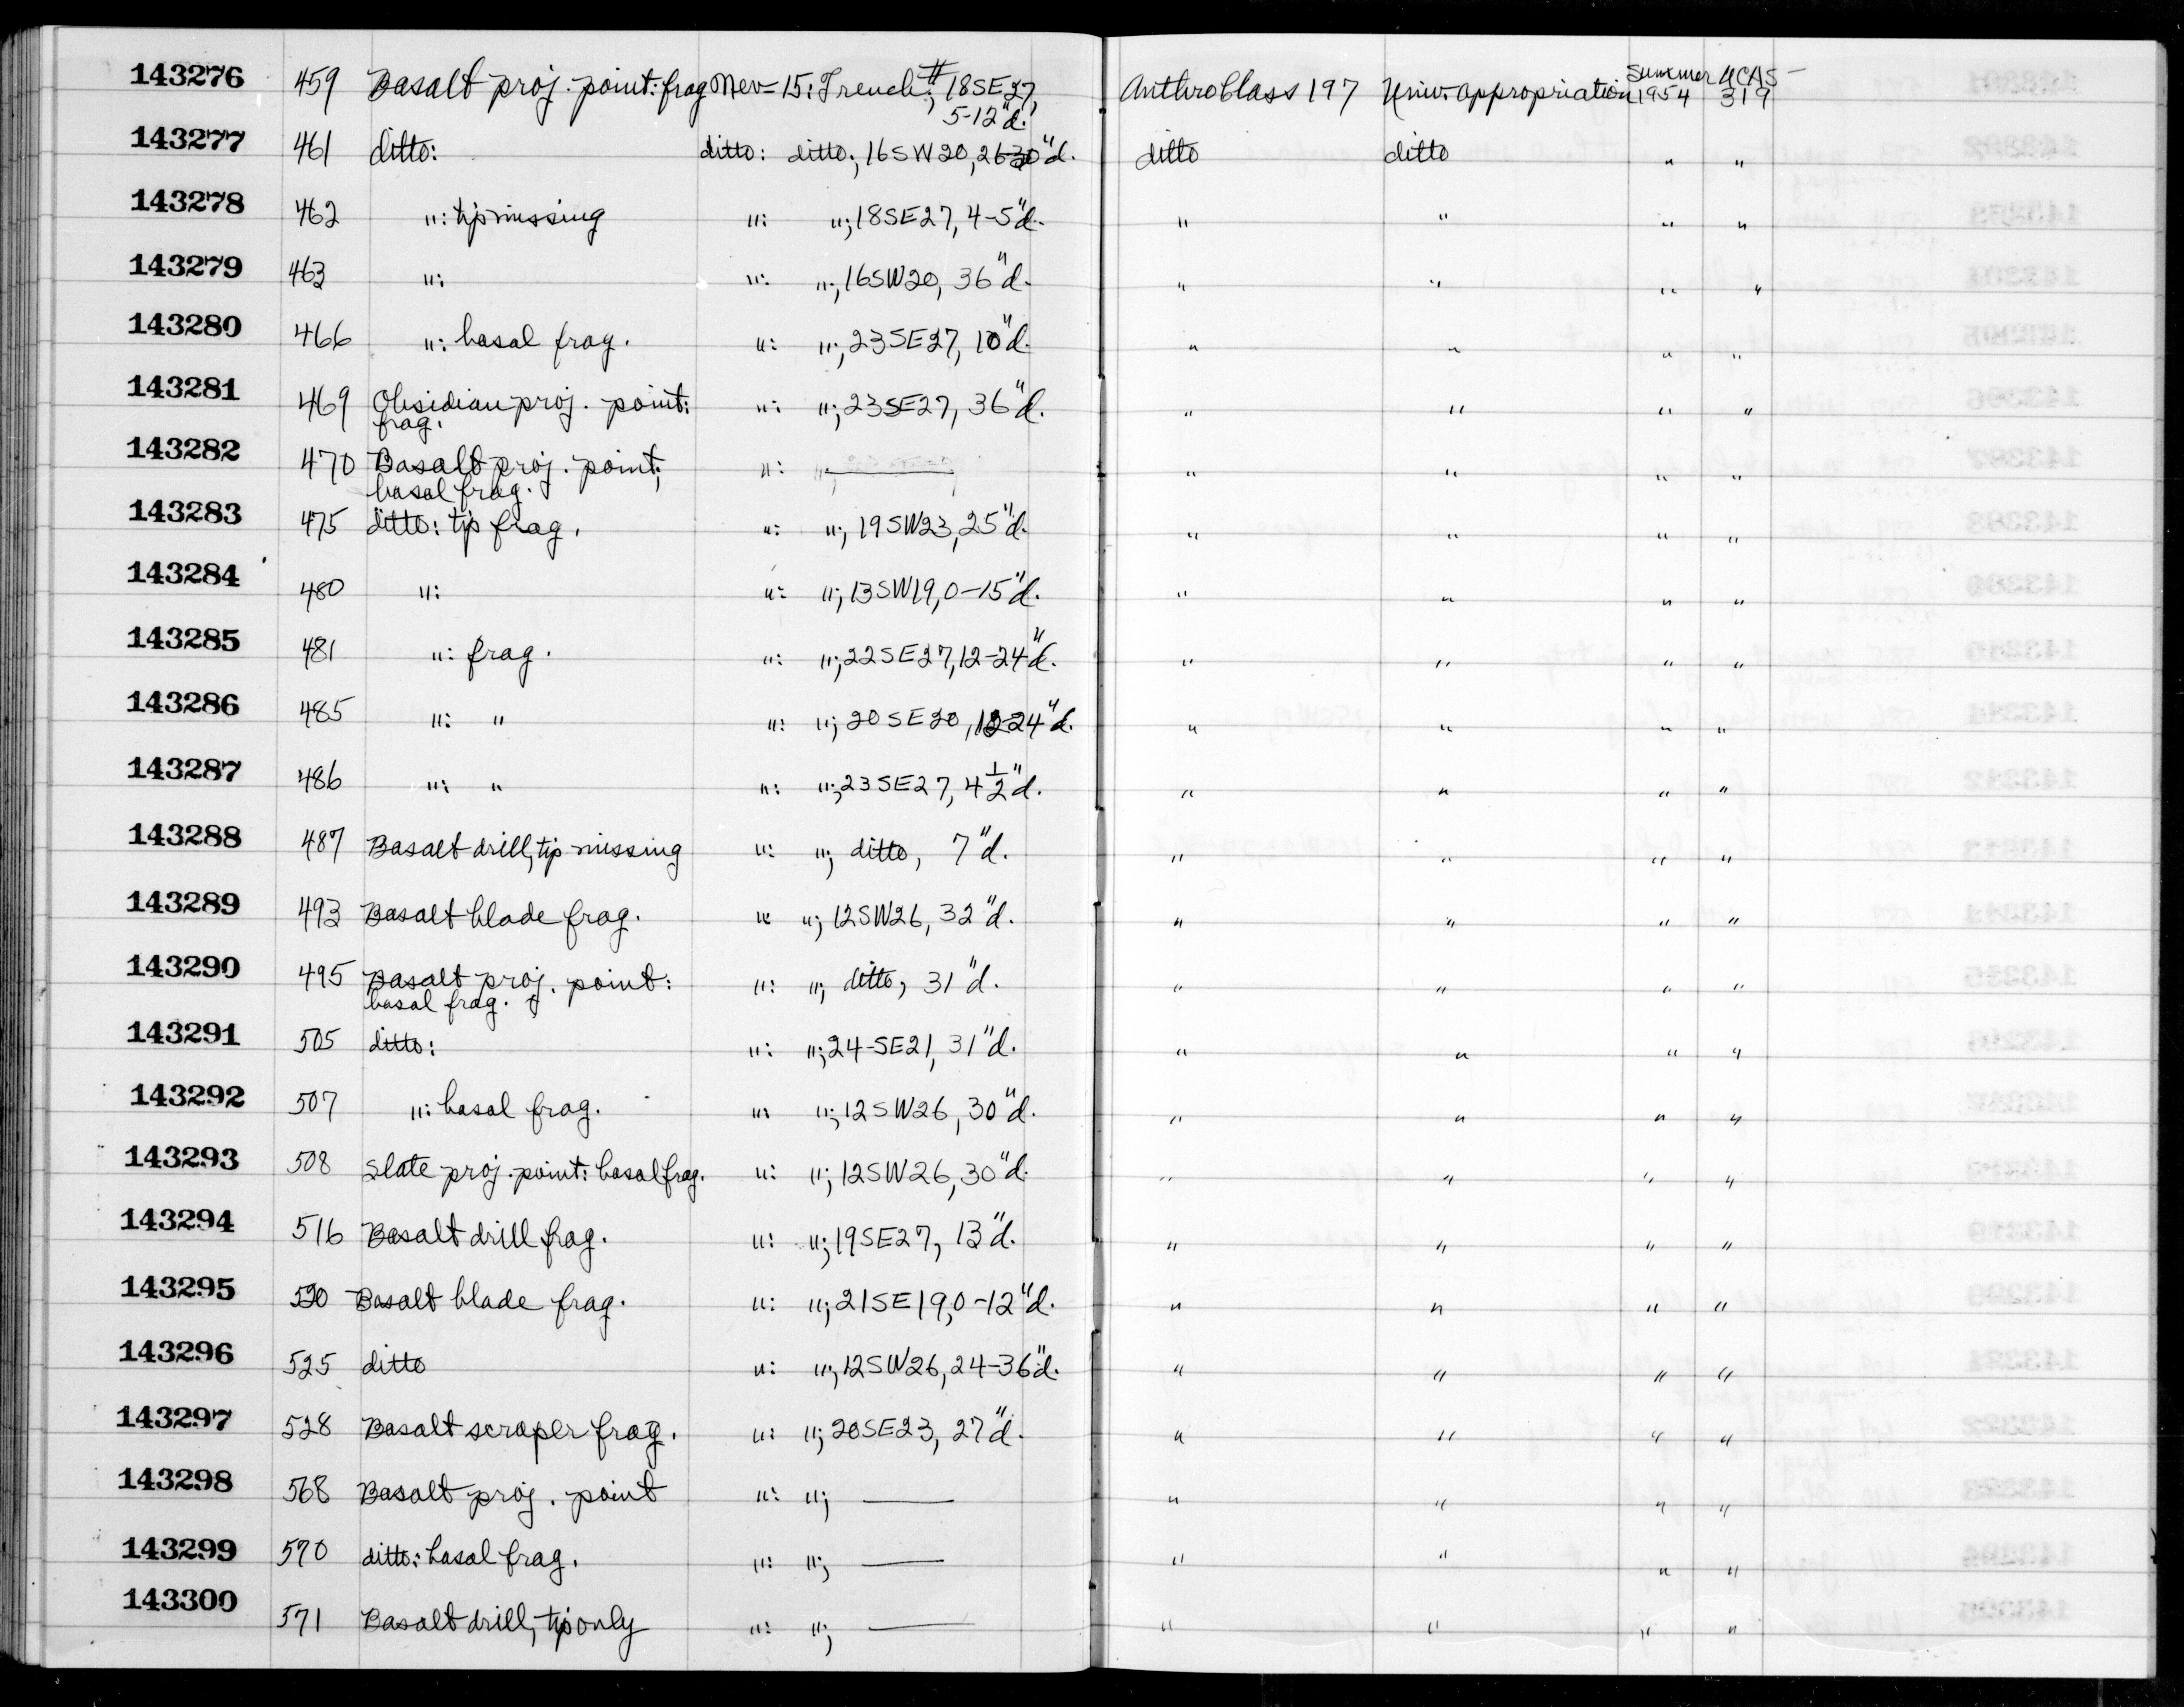 143276 459 Basalt proj. point: frag Nev-15: Trench #; 18SE27, 5-12"d. Anthro Class 197 Univ. appropriation Summer 1954 UCAS-319
143277 461 ditto: ditto: ditto; 16SW20, 26-30"d. ditto ditto " "
143278 462 ": tip missing ": "; 18SE27, 4-5"d. " " " "
143279 463 ": ": "; 16SW20, 36"d. " " " "
143280 466 ": basal frag. ": "; 23SE27, 10"d. " " " "
143281 469 Obsidian proj. point: frag. ": "; 23SE27, 36"d. " " " "
143282 470 Basalt proj. point; basal frag. ": "; — " " " "
143283 475 ditto: tip frag. ": "; 19SW23, 25"d. " " " "
143284 480 ": ": "; 13SW19, 0-15"d. " " " "
143285 481 ": frag. ": "; 22SE27, 12-24"d. " " " "
143286 485 ": " ": "; 20SE20, 12-24"d. " " " "
143287 486 ": " ": "; 23SE27, 4 1/2"d. " " " "
143288 487 Basalt drill, tip missing ": "; ditto, 7"d. " " " "
143289 493 Basalt blade frag. ": "; 12SW26, 32"d. " " " "
143290 495 Basalt proj. point: basal frag. ": "; ditto, 31"d. " " " "
143291 505 ditto: ": "; 24-SE21, 31"d. " " " "
143292 507 ": basal frag. ": "; 12SW26, 30"d. " " " "
143293 508 Slate proj. point: basal frag. ": "; 12SW26, 30"d. " " " "
143294 516 Basalt drill frag. ": "; 19SE27, 13"d. " " " "
143295 520 Basalt blade frag. ": "; 21SE19, 0-12"d. " " " "
143296 525 ditto ": "; 12SW26, 24-36"d. " " " "
143297 528 Basalt scraper frag. ": "; 20SE23, 27"d. " " " "
143298 568 Basalt proj. point ": "; — " " " "
143299 570 ditto: basal frag. ": "; — " " " "
143300 571 Basalt drill, tip only ": "; — " " " "